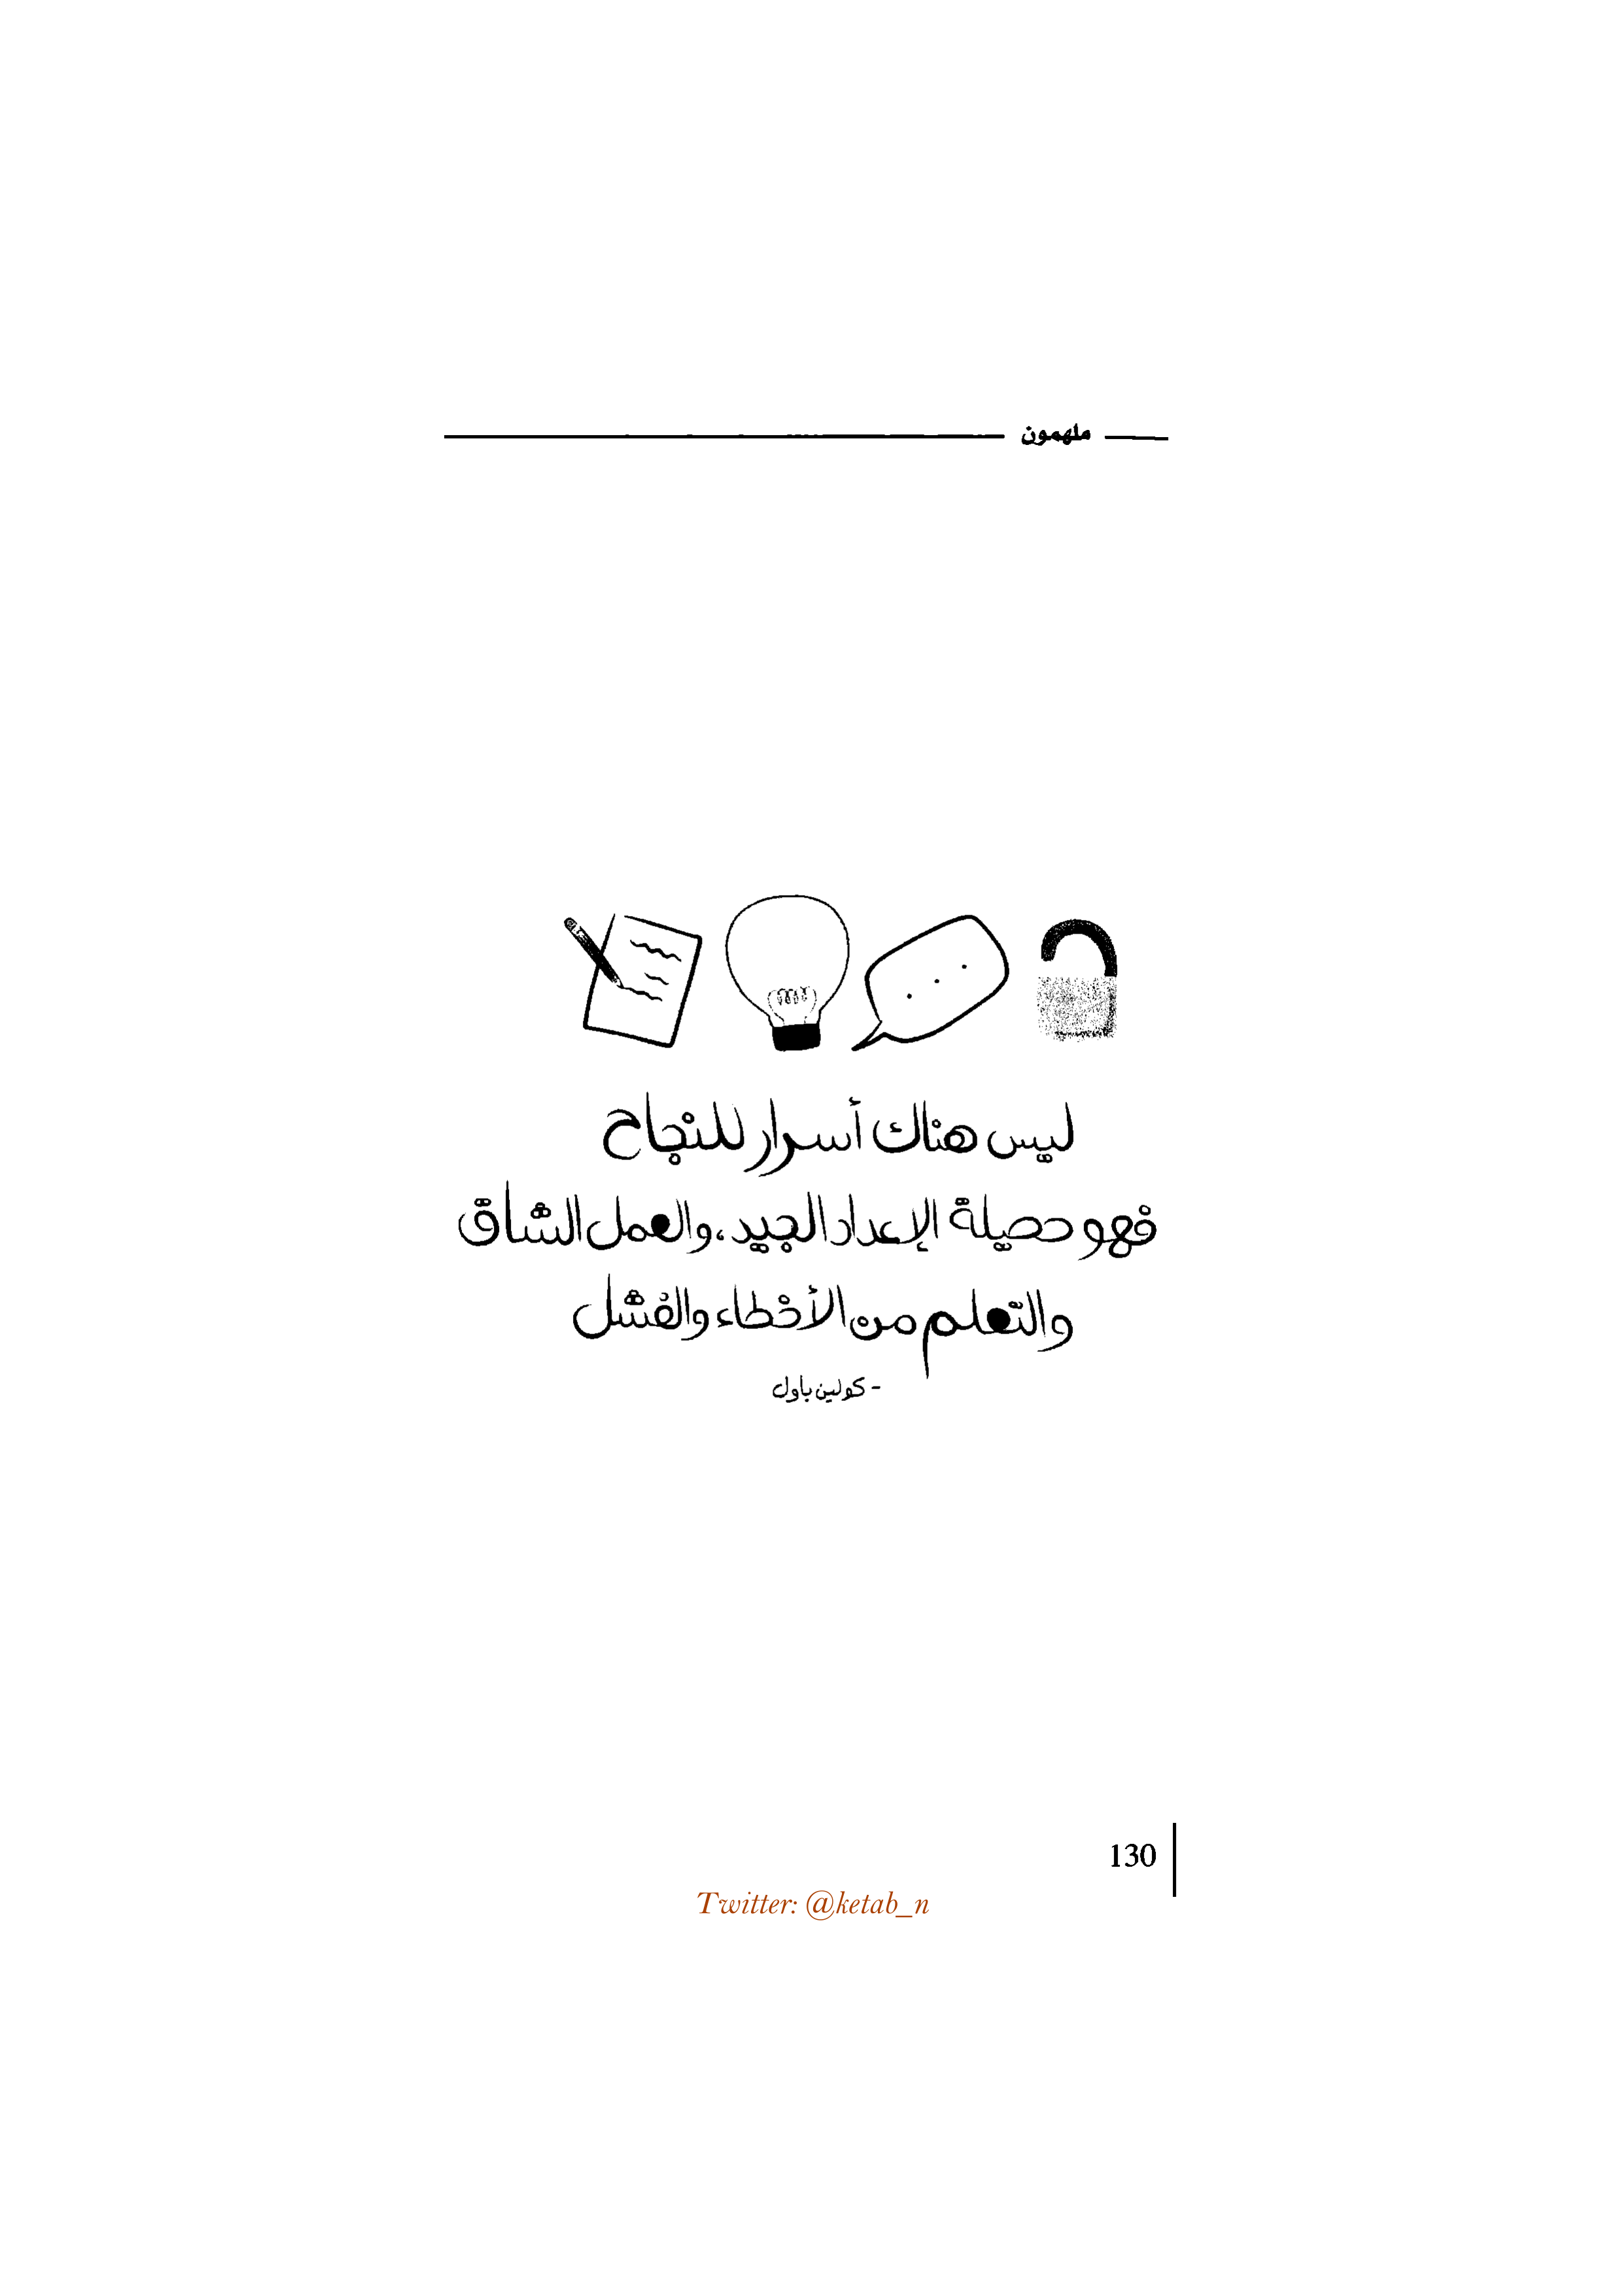 ملهمون
ليس هناك أسرار للنجاح
فهو حصيلة الإعداد الجيد، والعمل الشاق
والتعلم من الأخطاء والفشل
- كولين باول
130
Twitter: @ketab_n